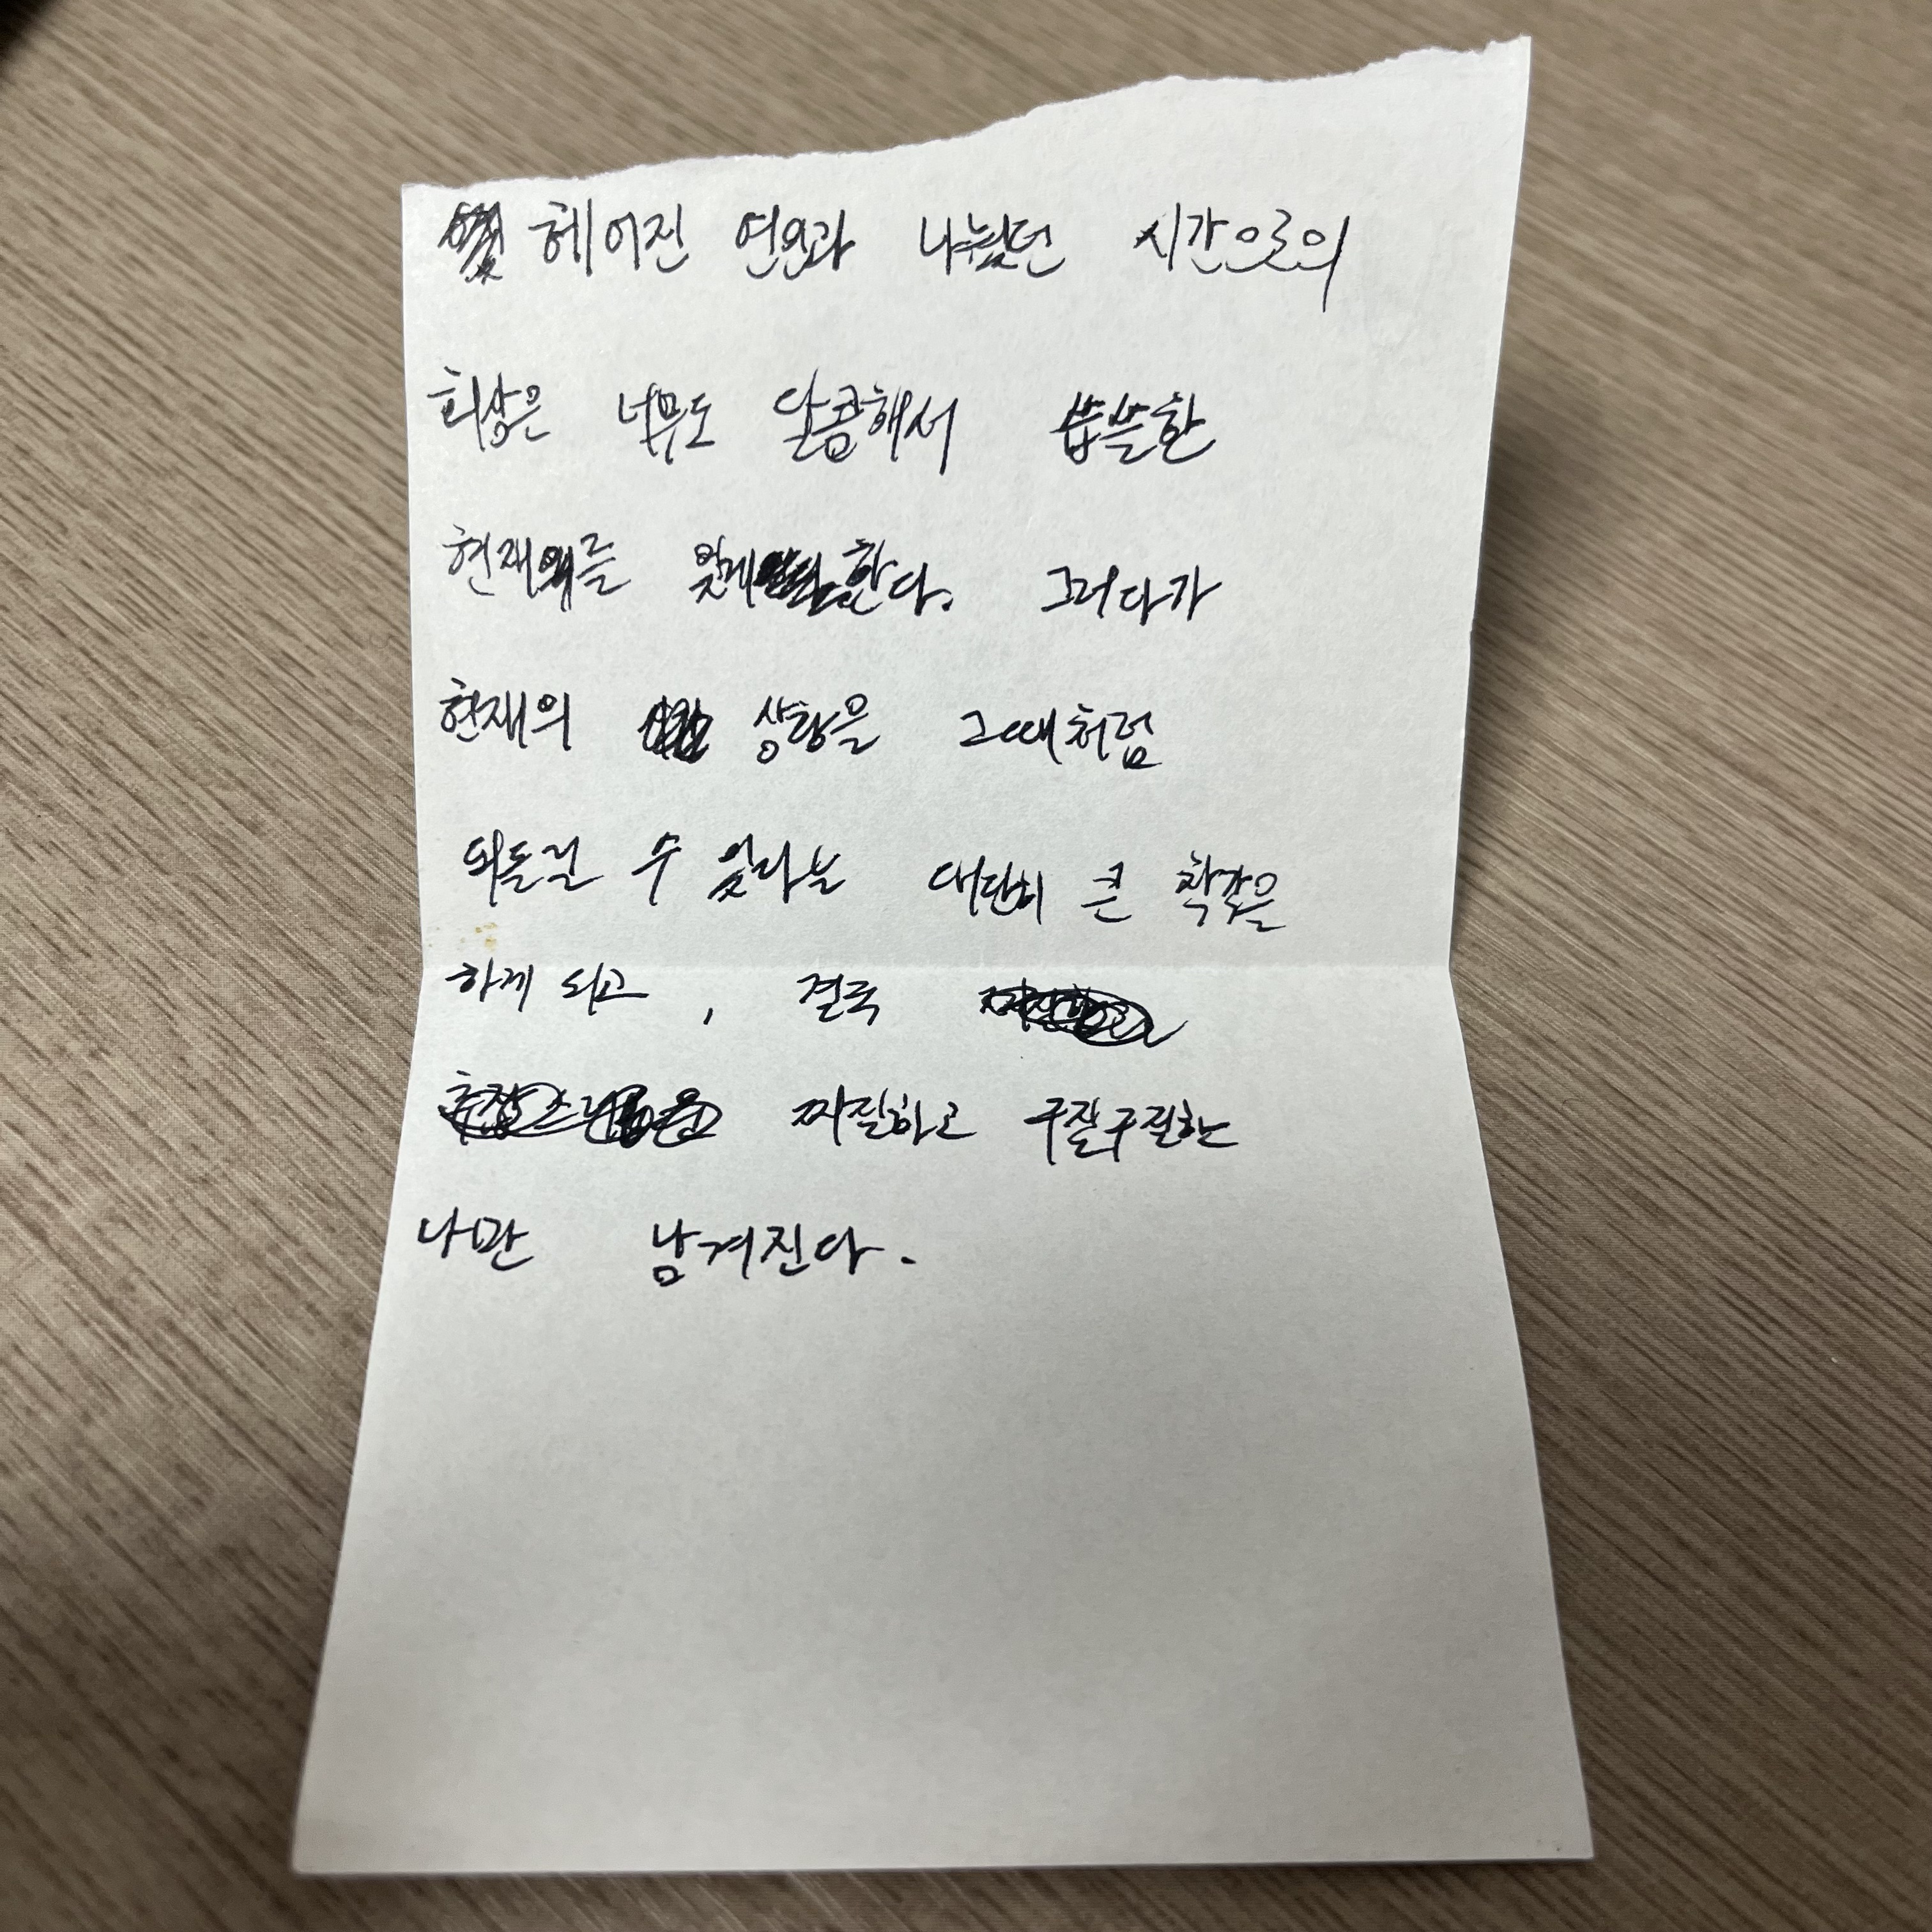 헤어진 연인과 나눴던 시간으로의
회상은 너무도 달콤해서 씁쓸한
현재를 잊게 한다. 그러다가
현재의 상황을 그때처럼
되돌릴 수 있다는 대단히 큰 착각을
하게 되고, 결국
찌질하고 구질구질한
나만 남겨진다.